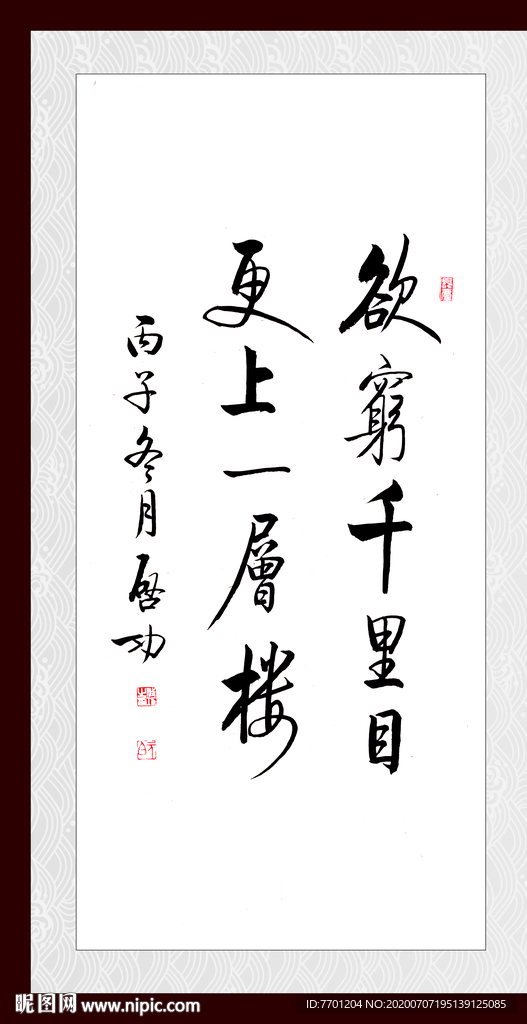 欲窮千里目
更上一層楼
丙子冬月启功
昵图网 www.nipic.com
ID:7701204 NO:20200707195139125085